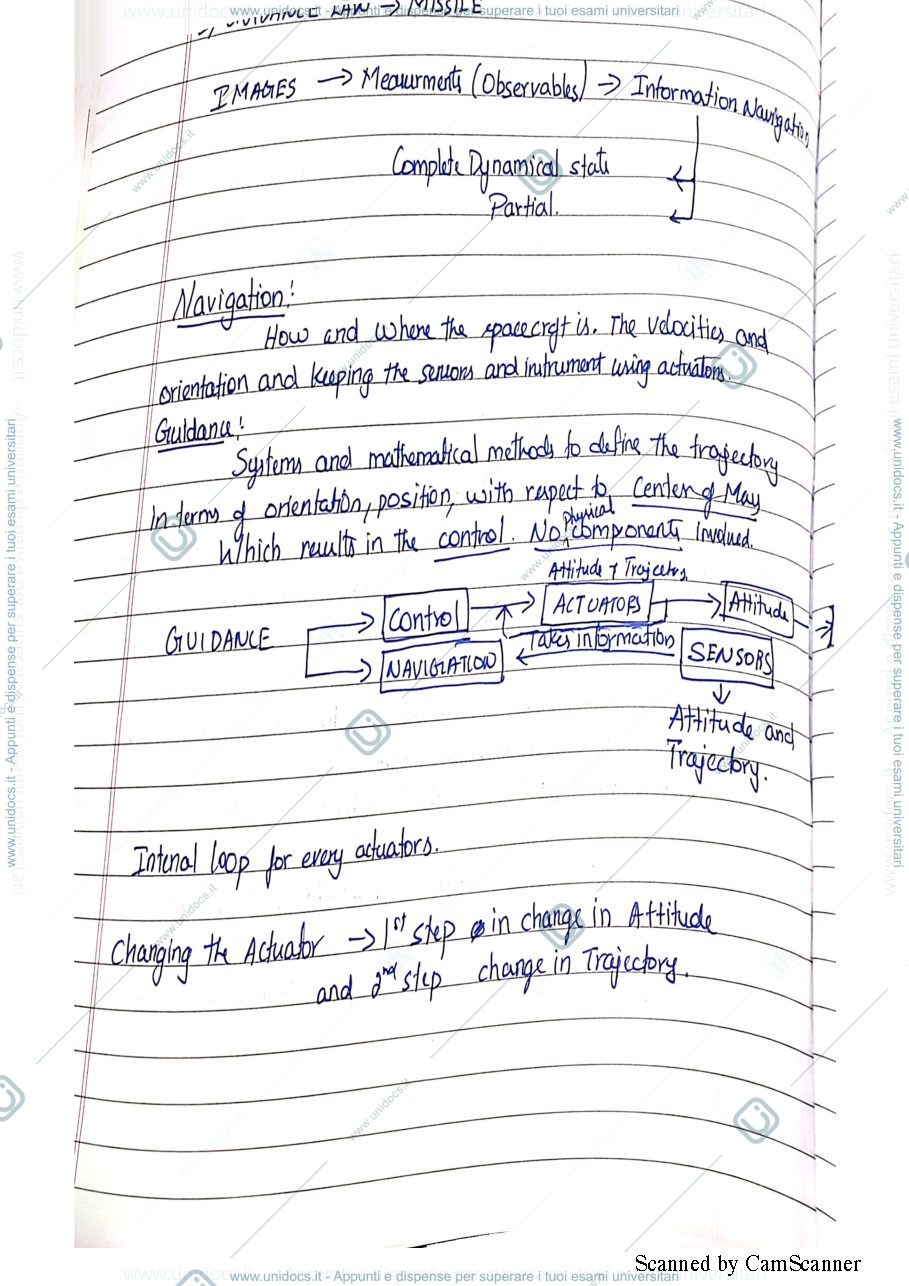 www.unidocs.it - Appunti e dispense per superare i tuoi esami universitari
GUIDANCE LAW → MISSILE
IMAGES → Meaurments (Observables) → Information Navigation
Complete Dynamical state
Partial.
Navigation:
How and where the spacecrgt is. The velocities and
orientation and keeping the sensors and instrument using actuators.
Guidance:
Systems and mathematical methods to define the trajectory
in terms of orientation, position, with respect to Center of May
Which results in the control. No physical components involved.
Attitude & Trajectory
GUIDANCE
Control → ACTUATORS → Attitude
NAVIGATION Takes information SENSORS
Attitude and
Trajectory.
Internal loop for every actuators.
Changing the Actuator → 1st step in change in Attitude
and 2nd step change in Trajectory.
Scanned by CamScanner
www.unidocs.it - Appunti e dispense per superare i tuoi esami universitari